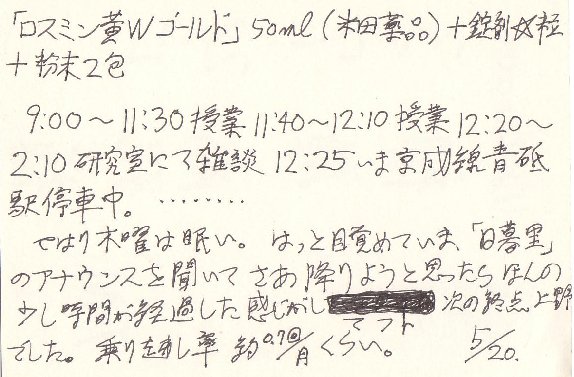 「ロスミン黄Wゴールド」50ml(米田薬品)+錠剤女粒
+粉末2包
9:00〜11:30授業 11:40〜12:10授業 12:20〜
2:10研究室にて雑談 12:25いま京成線青砥
駅停車中。‥‥‥‥
やはり木曜は眠い。はっと目覚めていま、「日暮里」
のアナウンスを聞いてさあ降りようと思ったらほんの
少し時間が経過した感じがし 次の終点上野
でした。乗り越し率 約0.7回/月くらい。 5/20.